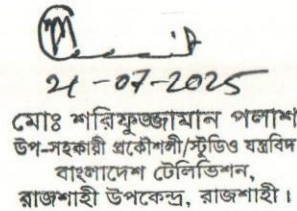 21-07-2025
মোঃ শরিফুজ্জামান পলাশ
উপ-সহকারী প্রকৌশলী/স্টুডিও যন্ত্রবিদ
বাংলাদেশ টেলিভিশন,
রাজশাহী উপকেন্দ্র, রাজশাহী।